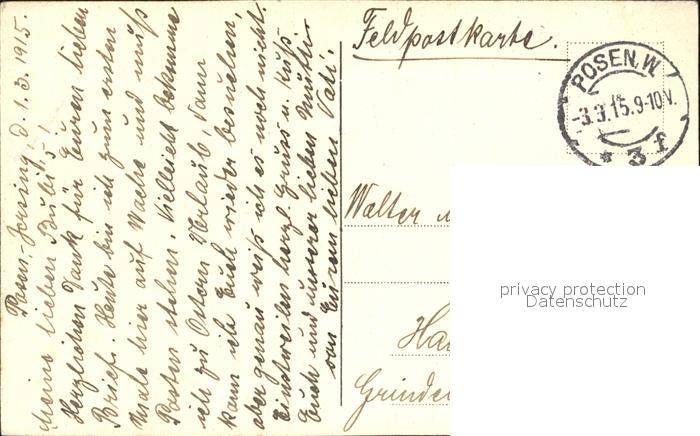 Posen-Jersing, d. 1.3.1915.
Meine lieben Bubi's!
Herzlichen Dank für Euren lieben
Brief. Heute bin ich zum ersten
Male hier auf Wache und muß
Posten stehen. Vielleicht bekomme
ich zu Ostern Urlaub, dann
kann ich Euch wieder besuchen,
aber genau weiß ich es noch nicht.
Einstweilen herzl. Gruss u. Kuß
Euch und unserer lieben Mutti
von Eurem lieben Vati.
Feldpostkarte.
POSEN. W.
-3.3.15.9-10V.
* 3 f
Walter
Ha
Grinde
privacy protection
Datenschutz